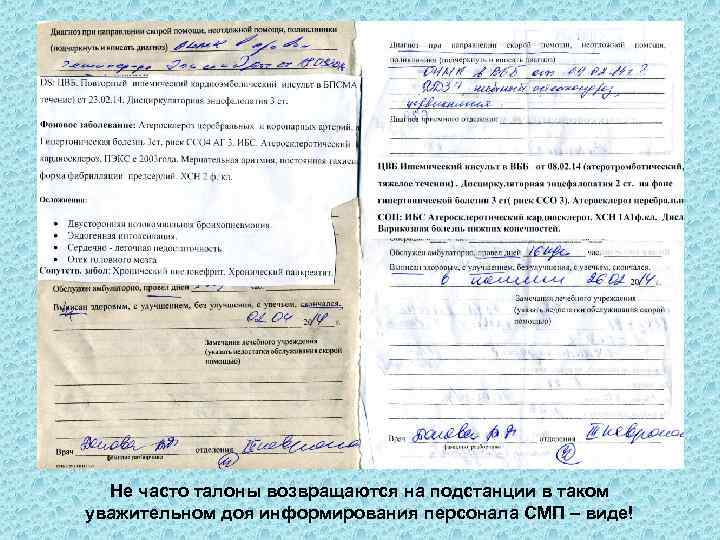 Диагноз при направлении скорой помощи, неотложной помощи, поликлиники
(подчеркнуть и вписать диагноз) ОНМК
DS: ЦВБ. Повторный ишемический кардиоэмболический инсульт в БПСМА
течение) от 23.02.14. Дисциркуляторная энцефалопатия 3 ст.
Фоновое заболевание: Атеросклероз церебральных и коронарных артерий,
Гипертоническая болезнь 3ст, риск ССО4 АГ 3. ИБС. Атеросклеротический
кардиосклероз. ПЭКС с 2003гола. Мерцательная аритмия, постоянная тахис
форма фибрилляции предсердий. ХСН 2 ф. кл.
Осложнения:
• Двусторонняя нозокомиальная бронхопневмония.
• Эндогенная интоксикация.
• Сердечно - легочная недостаточность.
• Отек головного мозга
Сопутств. забол: Хронический пиелонефрит. Хронический панкреатит.
Обслужен амбулаторно, провел дней
Выписан здоровым, с улучшением, без улучшения, с увечьем, скончался.
02.04 2014 г.
Замечания лечебного учреждения
(указать недостатки обслуживания скорой
помощью)
Врач
фамилия разборчиво
отделения
Диагноз при направлении скорой помощи, неотложной помощи,
поликлиники (подчеркнуть и вписать диагноз)
ОНМК в ВББ от
остеохондроз,
Диагноз приемного отделения
ЦВБ.Ишемический инсульт в ВББ от 08.02.14 (атеротромботический,
тяжелое течения) . Дисциркуляторная энцефалопатия 2 ст. на фоне
гипертонической болезни 3 ст( риск ССО 3). Атеросклероз церебральн
СОП: ИБС Атеросклеротический кардиосклероз. ХСН 1А1ф.кл.
Варикозная болезнь нижних конечностей.
Обслужен амбулаторно, провел дней 16
Выписан здоровым, с улучшением, без улучшения, с увечьем, скончался.
26.02 2014 г.
Замечания лечебного учреждения
(указать недостатки обслуживания скорой
помощью)
Врач
фамилия разборчиво
отделения
Не часто талоны возвращаются на подстанции в таком
уважительном доя информирования персонала СМП – виде!